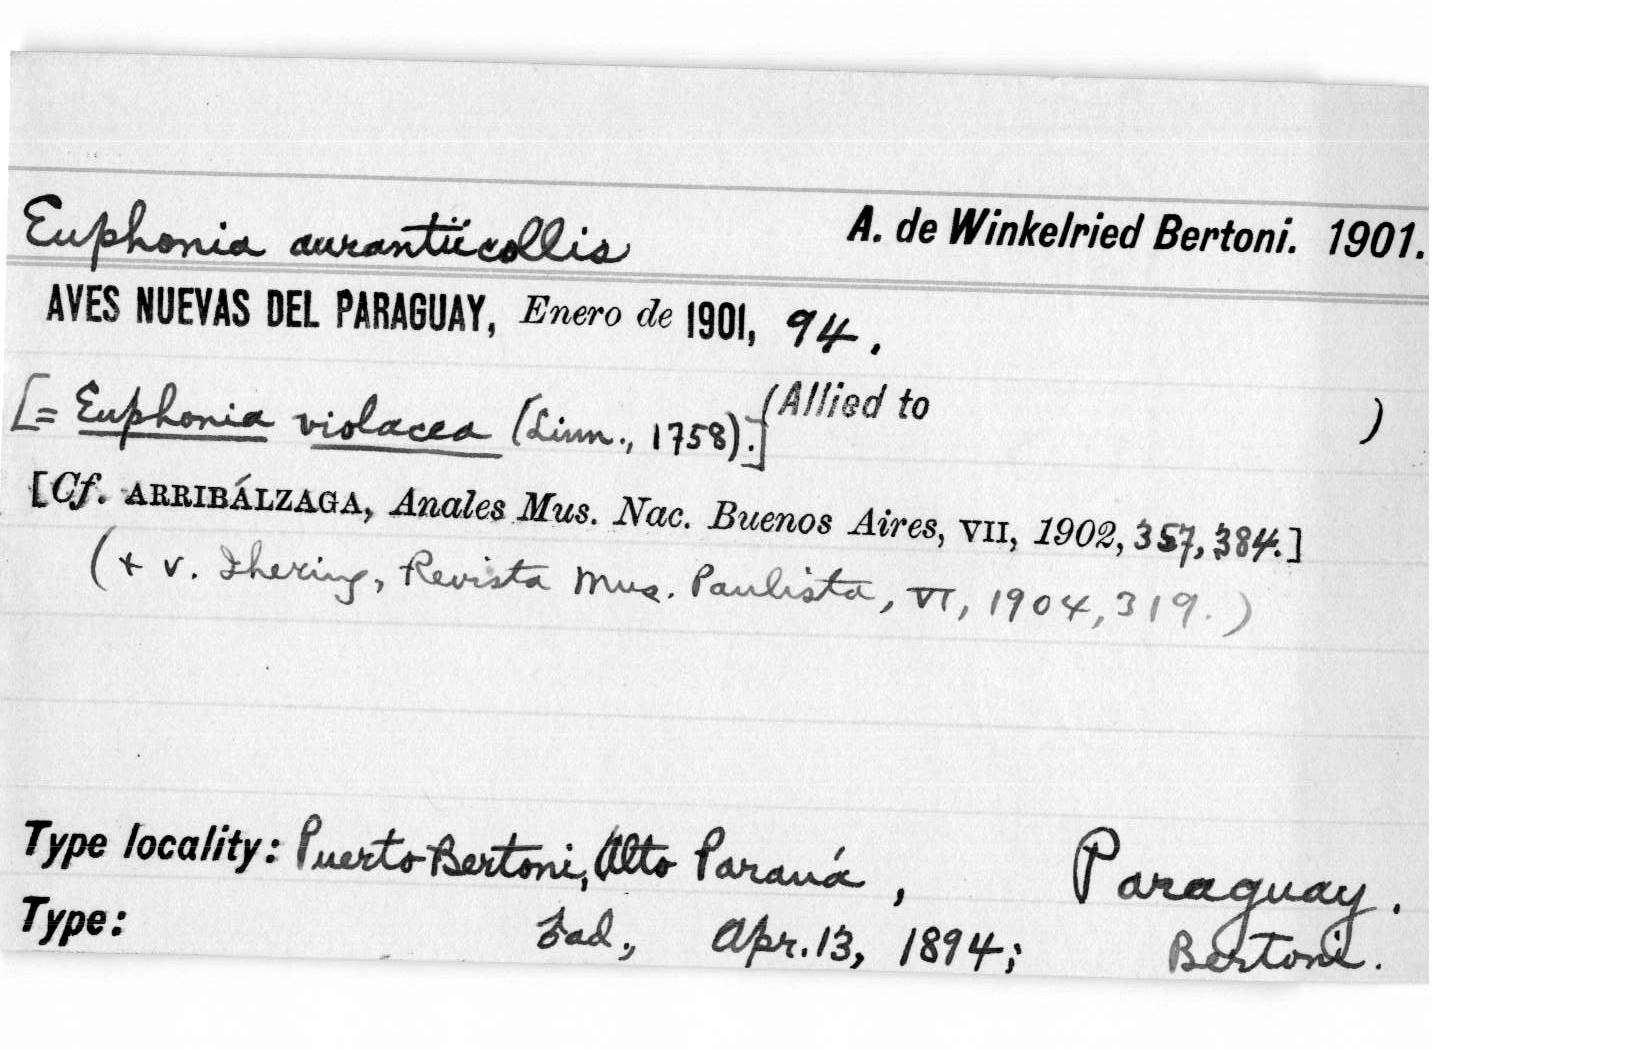 Euphonia aurantiicollis A. de Winkelried Bertoni. 1901.
AVES NUEVAS DEL PARAGUAY, Enero de 1901, 94.
[= Euphonia violacea (Linn., 1758).] (Allied to )
[Cf. ARRIBÁLZAGA, Anales Mus. Nac. Buenos Aires, VII, 1902, 357, 384.]
(+ v. Ihering, Revista Mus. Paulista, VI, 1904, 319.)
Type locality: Puerto Bertoni, Alto Paraná, Paraguay.
Type: ad., Apr. 13, 1894; Bertoni.